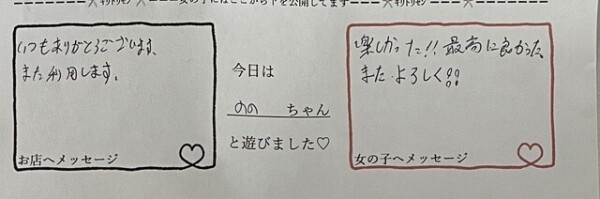 キリトリセン 女の子にはここから下を公開してます キリトリセン
いつもありがとうございます、
また利用します。
お店へメッセージ
今日は
のの ちゃん
と遊びました♡
楽しかった!! 最高に良かった、
また よろしく!!
女の子へメッセージ